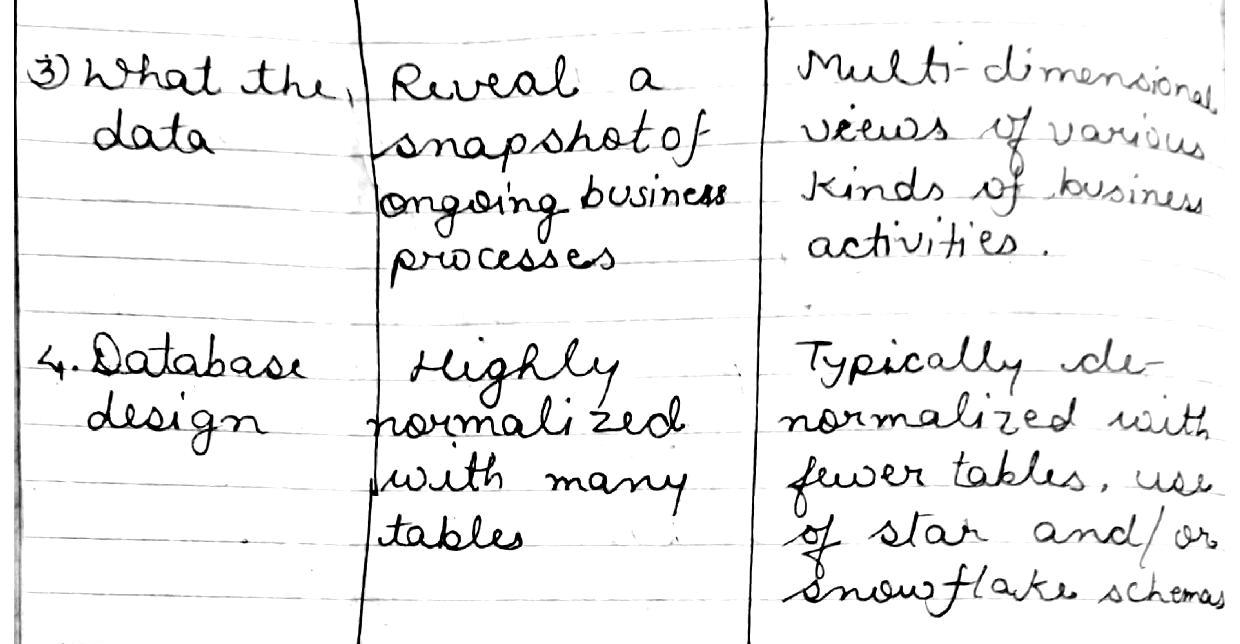 3) What the,
data
Reveal a
snapshot of
ongoing business
processes
Multi-dimensional
views of various
kinds of business
activities.
4. Database
design
Highly
normalized
with many
tables
Typically de-
normalized with
fewer tables, use
of star and/or
snowflake schemas